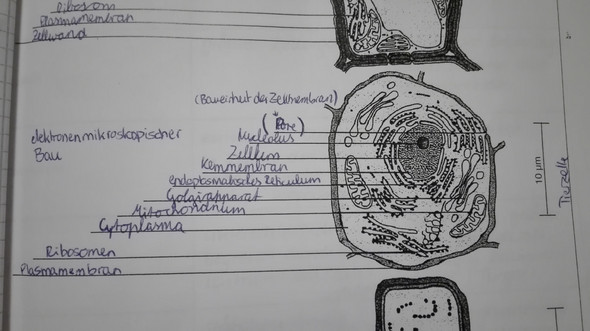 Ribosom
Plasmamembran
Zellwand
(Baueinheit der Zellmembran)
(Pore)
elektronenmikroskopischer
Bau
Nucleolus
Zellkern
Kernmembran
endoplasmatisches Reticulum
Golgiapparat
Mitochondrium
Cytoplasma
Ribosomen
Plasmamembran
10 µm
Tierzelle